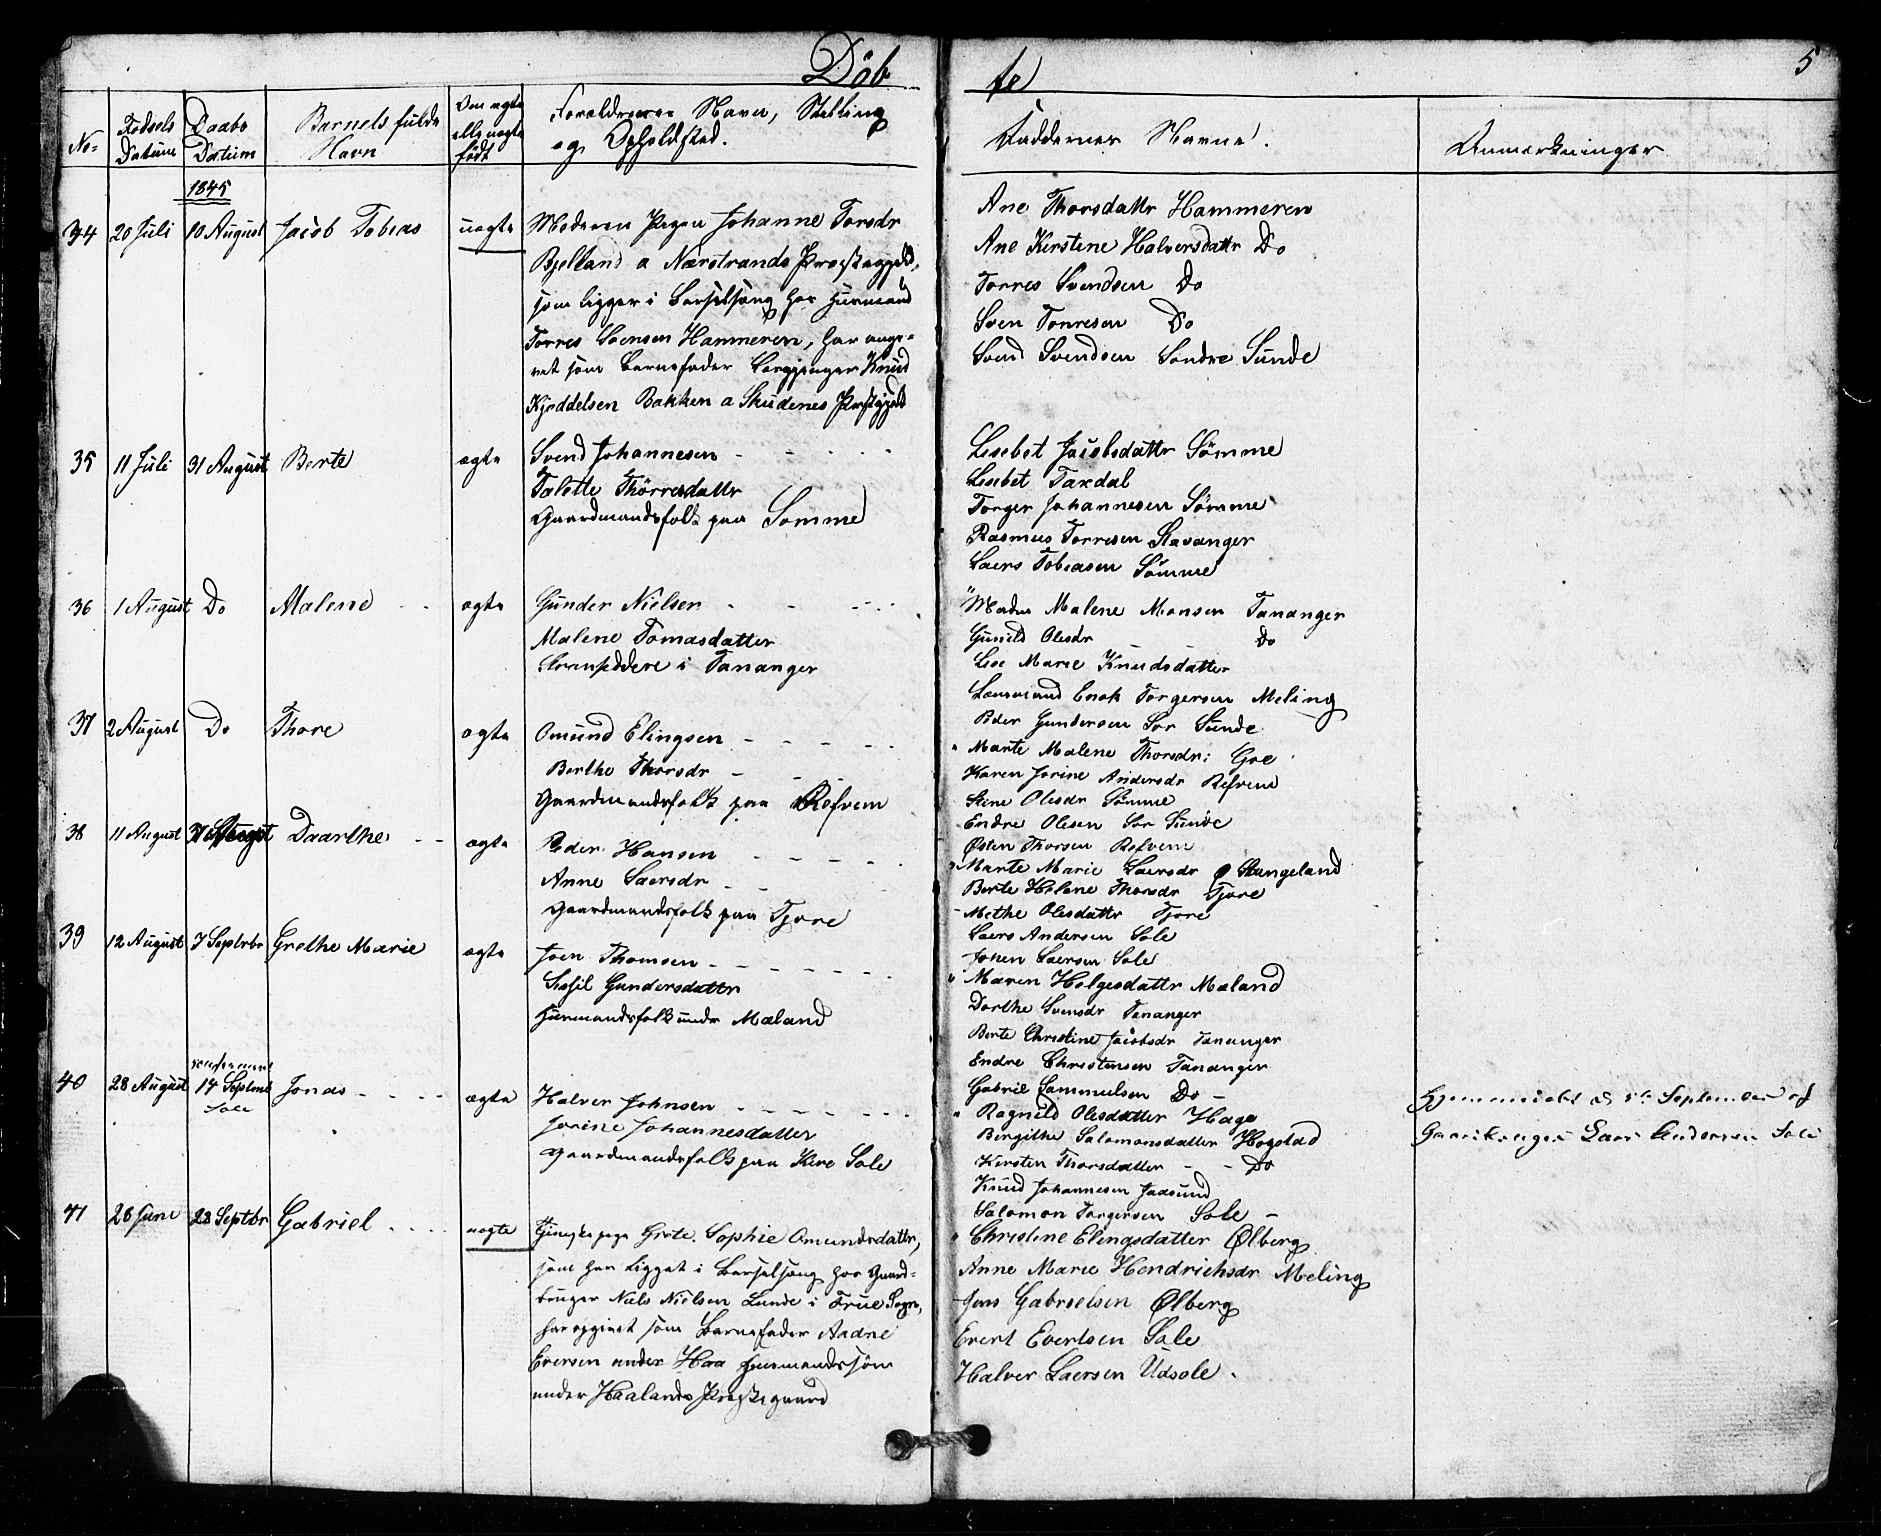 Döb te 5
No= Fødsels Datum Daabs Datum Barnets fulde Navn Om ægte elle uægte født Forældrenes Navn, Stilling og Opholdsted. Faddernes Navne. Anmærkninger
1845
34 20 Juli 10 August Jacob Tobias uægte Moderen Pigen Johanne Torsdr
Bjelland a Nærstrands Præstegjeld,
som ligger i Barselsæng hos Huusmand
Torres Svensen Hammeren, har angi-
vet som Barnefader Knud
Kjeddelsen Bakken a Skudenes Præstegjeld
Ane Thorsdattr Hammeren
Ane Kirstine Halversdattr Do
Torres Svendsen Do
Sven Torresen Do
Svend Svendsen Søndre Sunde
35 11 Juli 31 August Berte ægte Svend Johannesen
Talette Thörresdattr
Gaardmandsfolk paa Sömme
Lisebet Jacobsdattr Sömme
Lisebet Tardal
Torger Johannesen Sömme
Rasmus Torresen Stavanger
Laers Tobiasen Sömme
36 1 August Do Malene ægte Gunder Nielsen
Malene Tomasdatter
Strandsiddere i Tananger
" Madm Malene Monsen Tananger
Gunild Olesdr Do
Lise Marie Knudsdatter
Lænsmand Enok Torgersen Meling
Peder Gundersen Sør Sunde
37 2 August Do Thore ægte Omund Elingsen
Berthe Thorsdr
Gaardmandsfolk paa Refvem
" Marte Malene Thorsdr: Goe
Karen Jorine Andersdr Refvem
Stine Olesdr Sömme
Endre Olesen Sör Sunde
Østen Thorsen Refvem
38 11 August 31 August Daarthe ægte Peder Hansen
Anne Laersdr
Gaardmandsfolk paa Tjore
" Marte Marie Laersdr Stangeland
Berte Helene Thorsdr Tjore
- Methe Olesdattr Tjore
Laers Andersen Sole
Johen Laersen Sole
39 12 August 7 Septbr Grethe Marie ægte Joen Thomsen
Sissil Gundersdattr
Huusmandsfolk under Mæland
" Maren Helgesdattr Mæland
Dorthe Svensdr Tananger
Berte Christine Jacobsdr Tananger
Endre Christensen Tananger
Gabriel Sammuelsen Do -
40 28 August 14 Septmb Sole Jonas ægte Halver Johnsen
Jorine Johannesdatter
Gaardmandsfolk paa Kire Sole
" Ragnild Olesdatter Haga
Bergithe Salomonsdatter Hogstad
Kirsten Thorsdatter - - Do
Knud Johannesen Jaasund
Salomon Torgersen Sole -
Hjemmedøbt d September af
Gaardbruger Lars Andersen Sole
41 26 Juni 28 Septbr Gabriel uægte Grete Sophie Omundsdattr,
som har ligget i Barselsæng hos Gaard-
bruger Niels Nielsen Lunde i Frue Sogn,
har opgivet som Barnefader Aadne
Eversen under Haa Huusmandssön
under Haalands Præstegaard
" Christine Elingsdatter Ølberg
Anne Marie Hendrichsdr Meling
Jens Gabrielsen Ølberg
Evert Evertsen Sole
Halver Laersen Udsole.